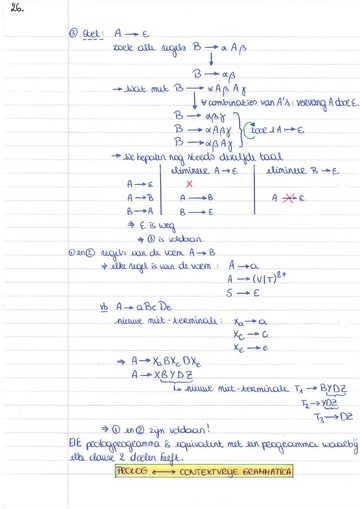 26.
③ Stel: A → ε
zoek alle regels B → α A β
↓
B → αβ
→ Wat met B → αAβAγ
↓ ∀ combinaties van A's: vervang A door ε.
B → αβγ
B → αAβγ } voor 1 A → ε
B → αβAγ
→ We bepalen nog steeds dezelfde taal
eliminere A → ε eliminere B → ε
A → ε X
A → B A → B A → ε
B → A B → ε
⇒ ε is weg
⇒ ③ is voldaan.
① en ② regels van de vorm A → B
⇒ elke regel is van de vorm: A → a
A → (V|T)²⁺
S → ε
vb A → aBcDe
nieuwe niet-terminale: Xa → a
Xc → c
Xe → e
⇒ A → XaBXcDXe
A → XBYDZ
↳ nieuwe niet-terminale T₁ → BYDZ
T₂ → YDZ
T₃ → DZ
⇒ ① en ② zijn voldaan!
Elk prologprogramma is equivalent met een programma waarbij
elke clause 2 doelen heeft.
PROLOG ↔ CONTEXTVRIJE GRAMMATICA